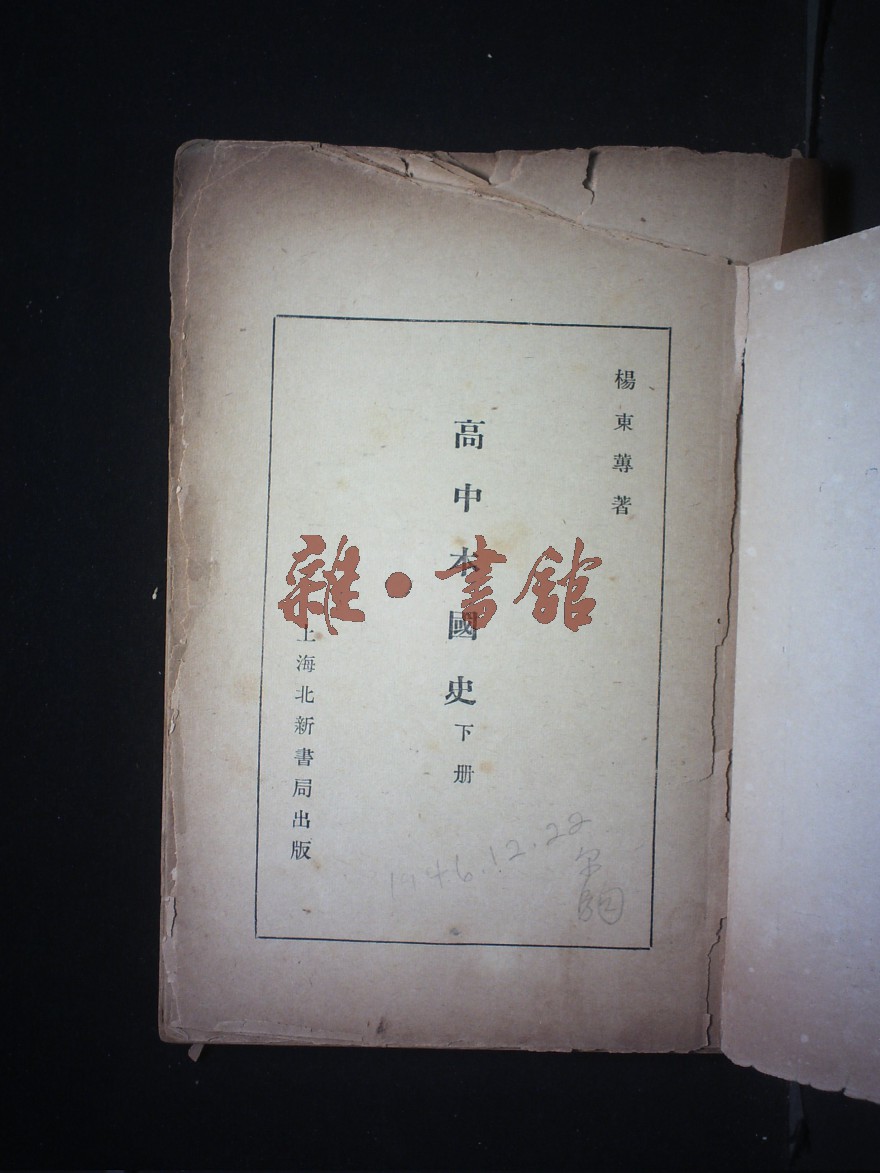 楊東蓴著
高中本國史下册
上海北新書局出版
雜·書館
1946.12.22